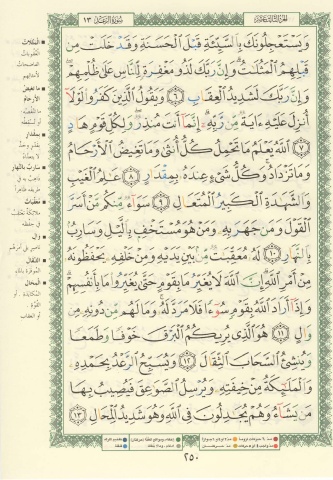 الجزء الثالث عشر
سورة الرعد ١٣
وَيَسْتَعْجِلُونَكَ بِالسَّيِّئَةِ قَبْلَ الْحَسَنَةِ وَقَدْ خَلَتْ مِن
قَبْلِهِمُ الْمَثُلَاتُ وَإِنَّ رَبَّكَ لَذُو مَغْفِرَةٍ لِّلنَّاسِ عَلَىٰ ظُلْمِهِمْ
وَإِنَّ رَبَّكَ لَشَدِيدُ الْعِقَابِ ﴿٦﴾ وَيَقُولُ الَّذِينَ كَفَرُوا لَوْلَا
أُنزِلَ عَلَيْهِ ءَايَةٌ مِّن رَّبِّهِ إِنَّمَا أَنتَ مُنذِرٌ وَلِكُلِّ قَوْمٍ هَادٍ
﴿٧﴾ اللَّهُ يَعْلَمُ مَا تَحْمِلُ كُلُّ أُنثَىٰ وَمَا تَغِيضُ الْأَرْحَامُ
وَمَا تَزْدَادُ وَكُلُّ شَيْءٍ عِندَهُ بِمِقْدَارٍ ﴿٨﴾ عَالِمُ الْغَيْبِ
وَالشَّهَادَةِ الْكَبِيرُ الْمُتَعَالِ ﴿٩﴾ سَوَاءٌ مِّنكُم مَّنْ أَسَرَّ
الْقَوْلَ وَمَن جَهَرَ بِهِ وَمَنْ هُوَ مُسْتَخْفٍ بِاللَّيْلِ وَسَارِبٌ
بِالنَّهَارِ ﴿١٠﴾ لَهُ مُعَقِّبَاتٌ مِّن بَيْنِ يَدَيْهِ وَمِنْ خَلْفِهِ يَحْفَظُونَهُ
مِنْ أَمْرِ اللَّهِ إِنَّ اللَّهَ لَا يُغَيِّرُ مَا بِقَوْمٍ حَتَّىٰ يُغَيِّرُوا مَا بِأَنفُسِهِمْ
وَإِذَا أَرَادَ اللَّهُ بِقَوْمٍ سُوءًا فَلَا مَرَدَّ لَهُ وَمَا لَهُم مِّن دُونِهِ مِن
وَالٍ ﴿١١﴾ هُوَ الَّذِي يُرِيكُمُ الْبَرْقَ خَوْفًا وَطَمَعًا
وَيُنشِئُ السَّحَابَ الثِّقَالَ ﴿١٢﴾ وَيُسَبِّحُ الرَّعْدُ بِحَمْدِهِ
وَالْمَلَائِكَةُ مِنْ خِيفَتِهِ وَيُرْسِلُ الصَّوَاعِقَ فَيُصِيبُ بِهَا
مَن يَشَاءُ وَهُمْ يُجَادِلُونَ فِي اللَّهِ وَهُوَ شَدِيدُ الْمِحَالِ ﴿١٣﴾
المثلات
العقوبات
ما تغيض
الأرحام
بمقدار
سارب بالنهار
معقبات
وال
الثقال
المحال
٢٥٠